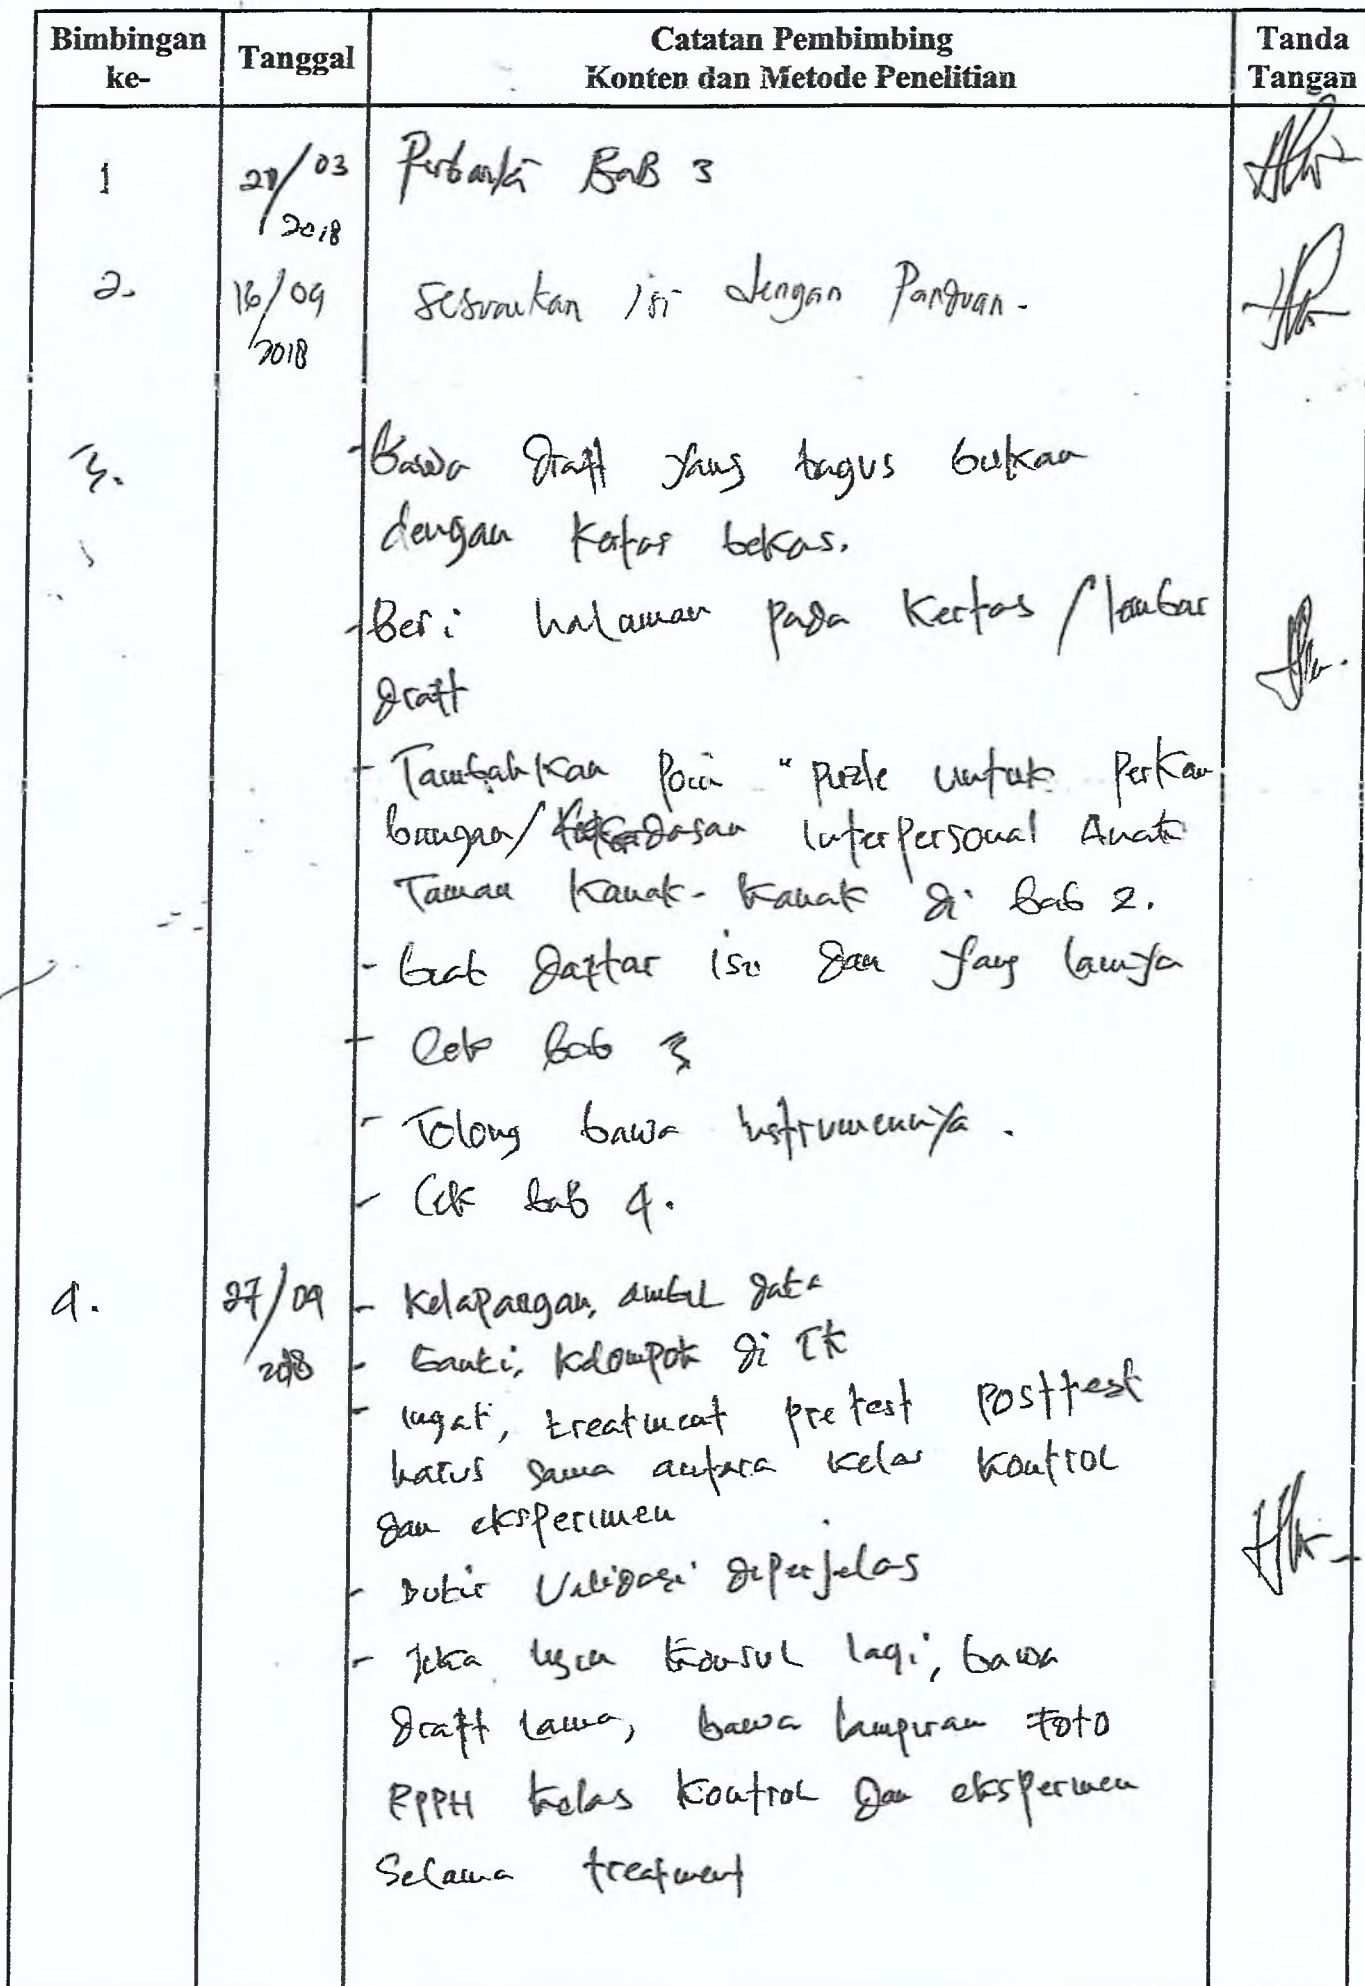 Bimbingan ke- Tanggal Catatan Pembimbing Konten dan Metode Penelitian Tanda Tangan
1 /03 2018 BaB 3
2. 16/09 2018 Sesuaikan isi dengan Panduan.
3. - Bawa draft yang bagus bukan
dengan kertas bekas.
- Beri halaman pada kertas / lembar
draft
- Tambahkan poin "puzle untuk perkem
bangan/ kecerdasan interpersonal Anak
Taman Kanak-kanak di bab 2.
- buat daftar isi dan yang lainya
- Cek bab 3
- Tolong bawa instrumennya.
- Cek bab 4.
4. 27/09 2018 - Kelapangan, ambil data
- Ganti, kelompok di TK
- ingat, treatment pretest posttest
harus sama antara kelas kontrol
dan eksperimen
- Butir Validasi diperjelas
- Jika ingin konsul lagi, bawa
draft lama, bawa lampiran foto
RPPH kelas kontrol dan eksperimen
Selama treatment